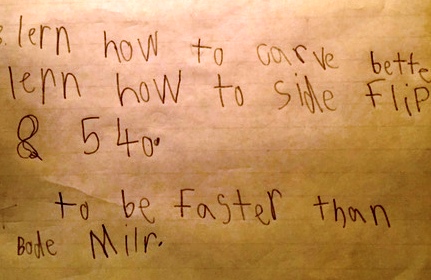 lern how to carve bette
lern how to side Flip
& 540.
to be faster than
Bode Milr.